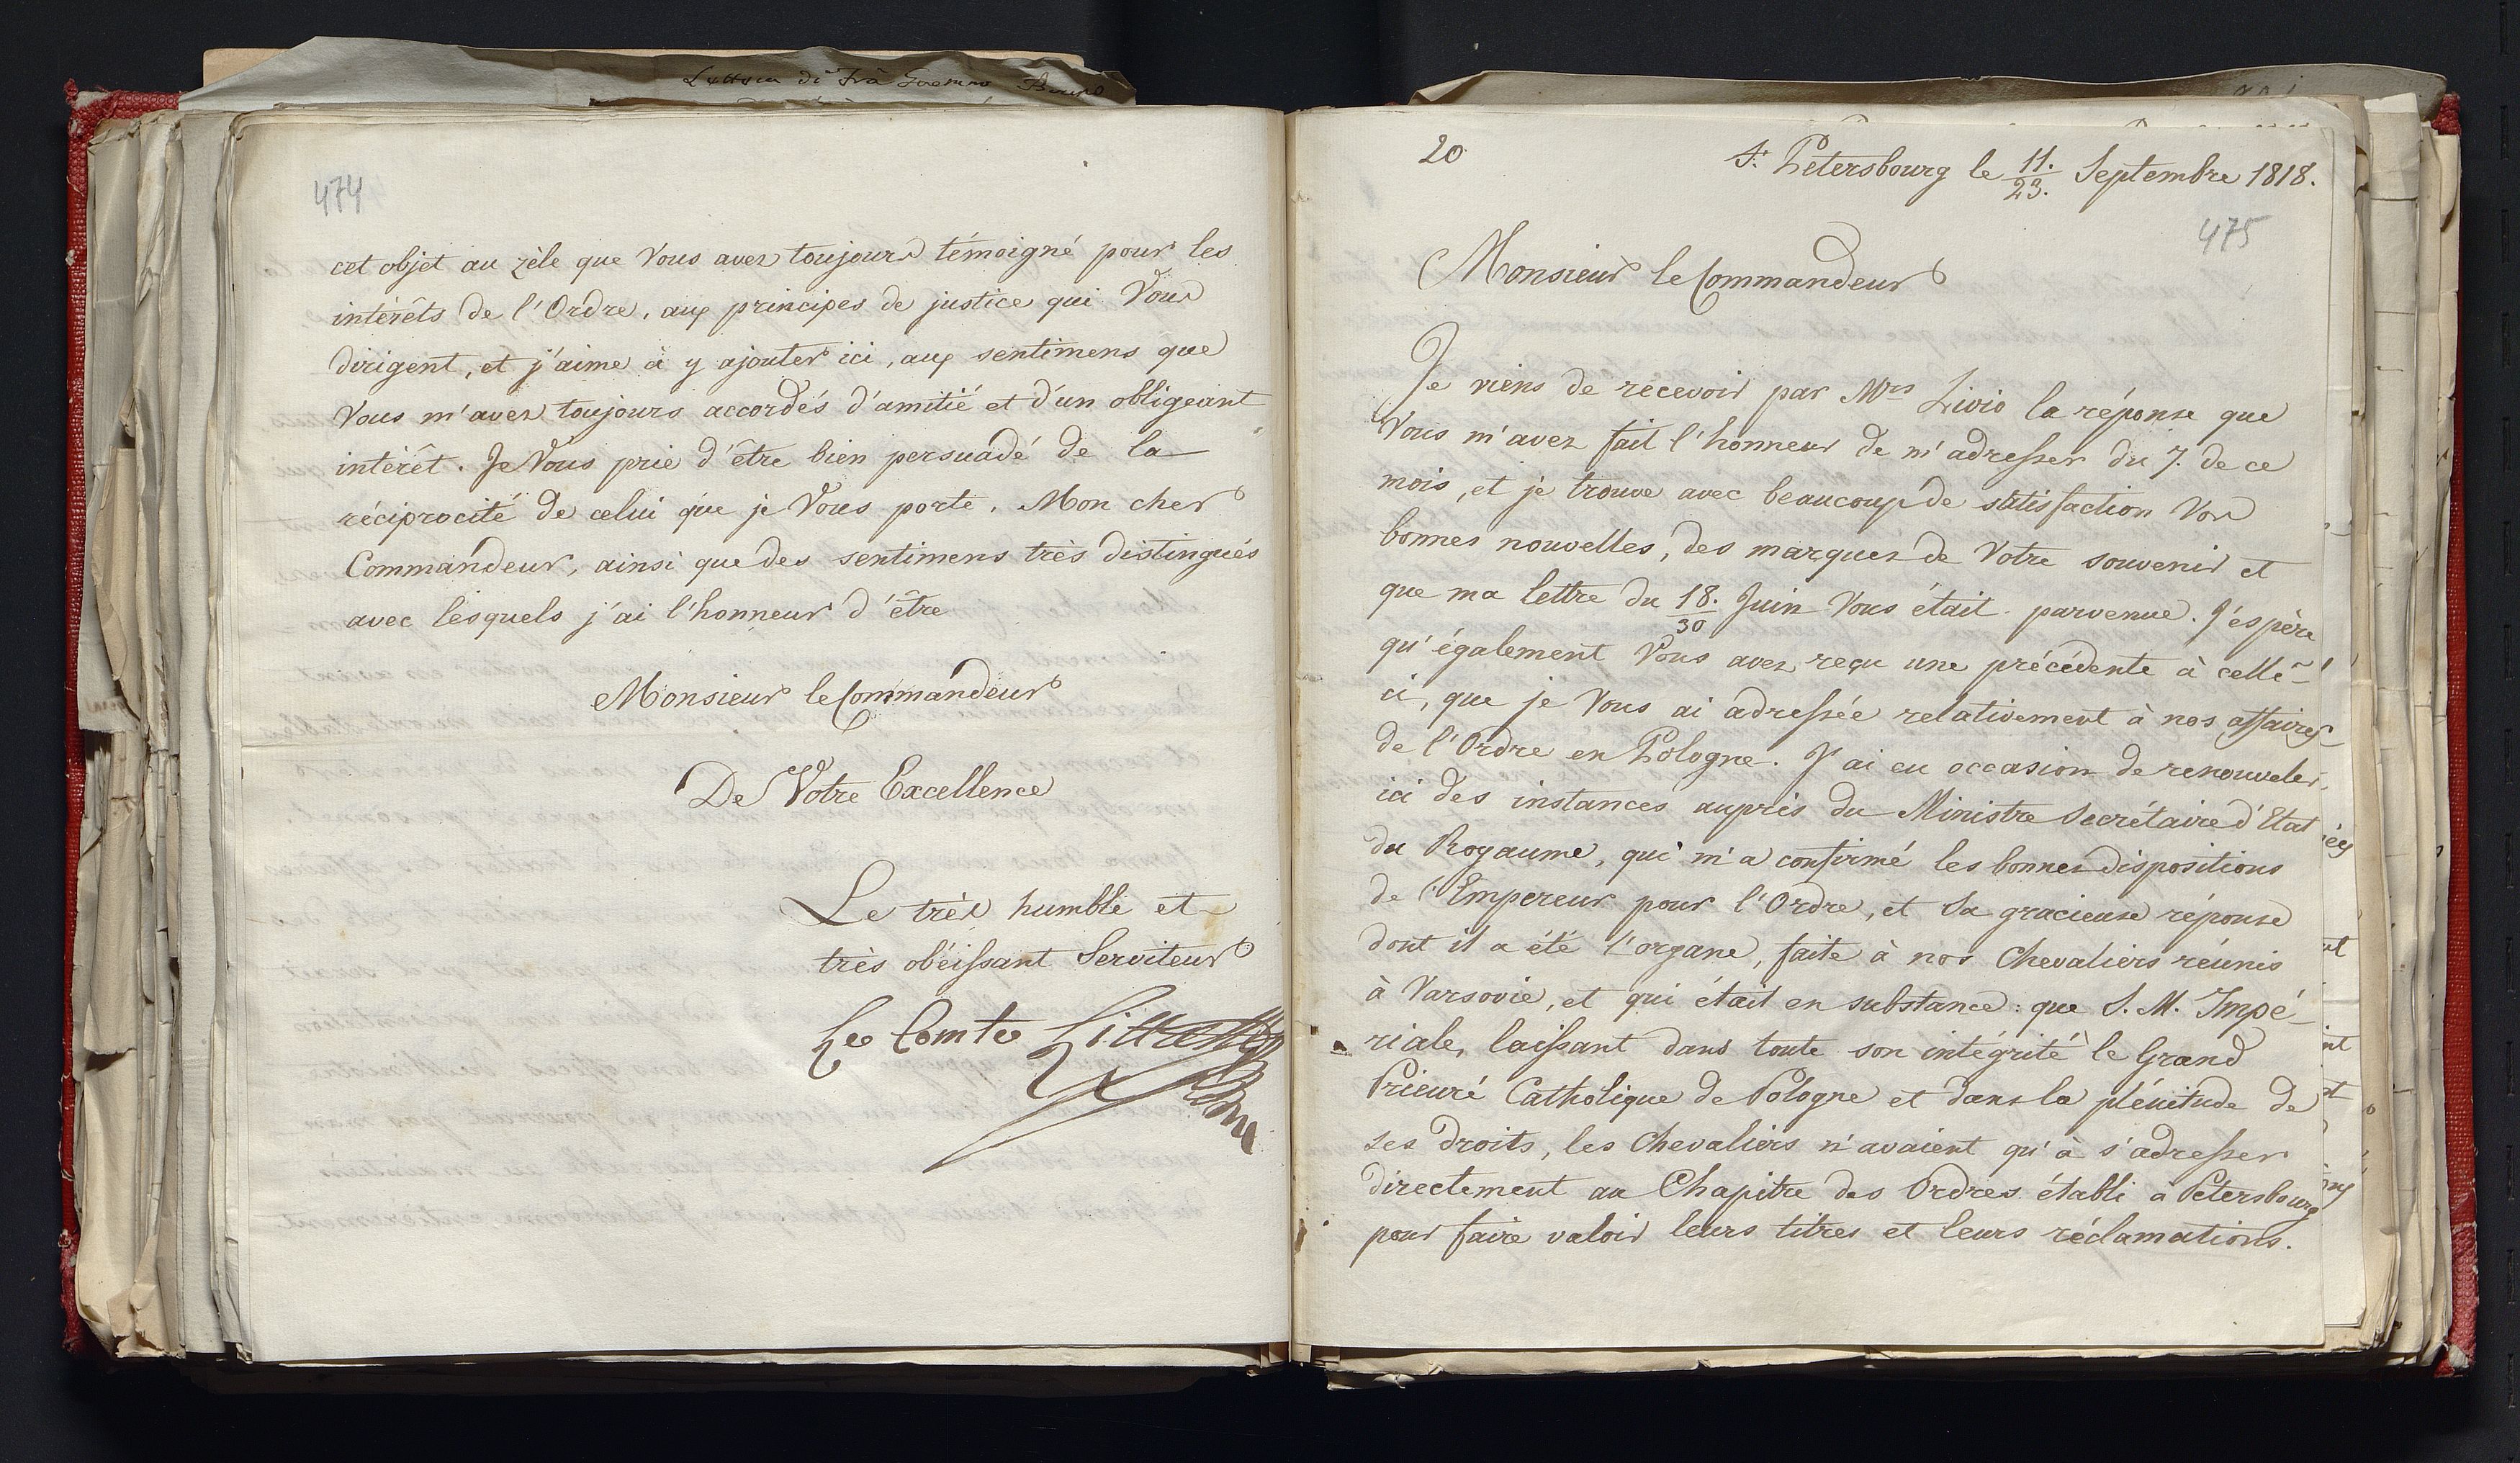 Lettera di Frà
474
cet objet au zèle que Vous avez toujours témoigné pour les
intérêts de l'Ordre, aux principes de justice qui Vous
dirigent, et j'aime à y ajouter ici, aux sentimens que
Vous m'avez toujours accordés d'amitié et d'un obligeant
intérêt. Je Vous prie d'être bien persuadé de la
réciprocité de celui que je Vous porte, Mon cher
Commandeur, ainsi que des sentimens très distingués
avec lesquels j'ai l'honneur d'être
Monsieur le Commandeur
De Votre Excellence
Le très humble et
très obéissant Serviteur
Le Comte Litta
20
St. Petersbourg le 11./23. Septembre 1818.
475
Monsieur le Commandeur
Je viens de recevoir par Mrs Livio la réponse que
Vous m'avez fait l'honneur de m'adresser du 7. de ce
mois, et je trouve avec beaucoup de satisfaction Vos
bonnes nouvelles, des marques de Votre souvenir et
que ma lettre du 18./30 Juin Vous était parvenue. J'espère
qu'également Vous avez reçu une précédente à celle-
ci, que je Vous ai adressée relativement à nos affaires
de l'Ordre en Pologne. J'ai eu occasion de renouveler
ici des instances auprès du Ministre Secrétaire d'Etat
du Royaume, qui m'a confirmé les bonnes dispositions
de l'Empereur pour l'Ordre, et Sa gracieuse réponse
dont il a été l'organe, faite à nos Chevaliers réunis
à Varsovie, et qui était en substance: que S. M. Impé-
riale, laissant dans toute son intégrité le Grand
Prieuré Catholique de Pologne et dans la plénitude de
ses droits, les Chevaliers n'avaient qu'à s'adresser
directement au Chapitre des Ordres établi à Petersbourg
pour faire valoir leurs titres et leurs réclamations.